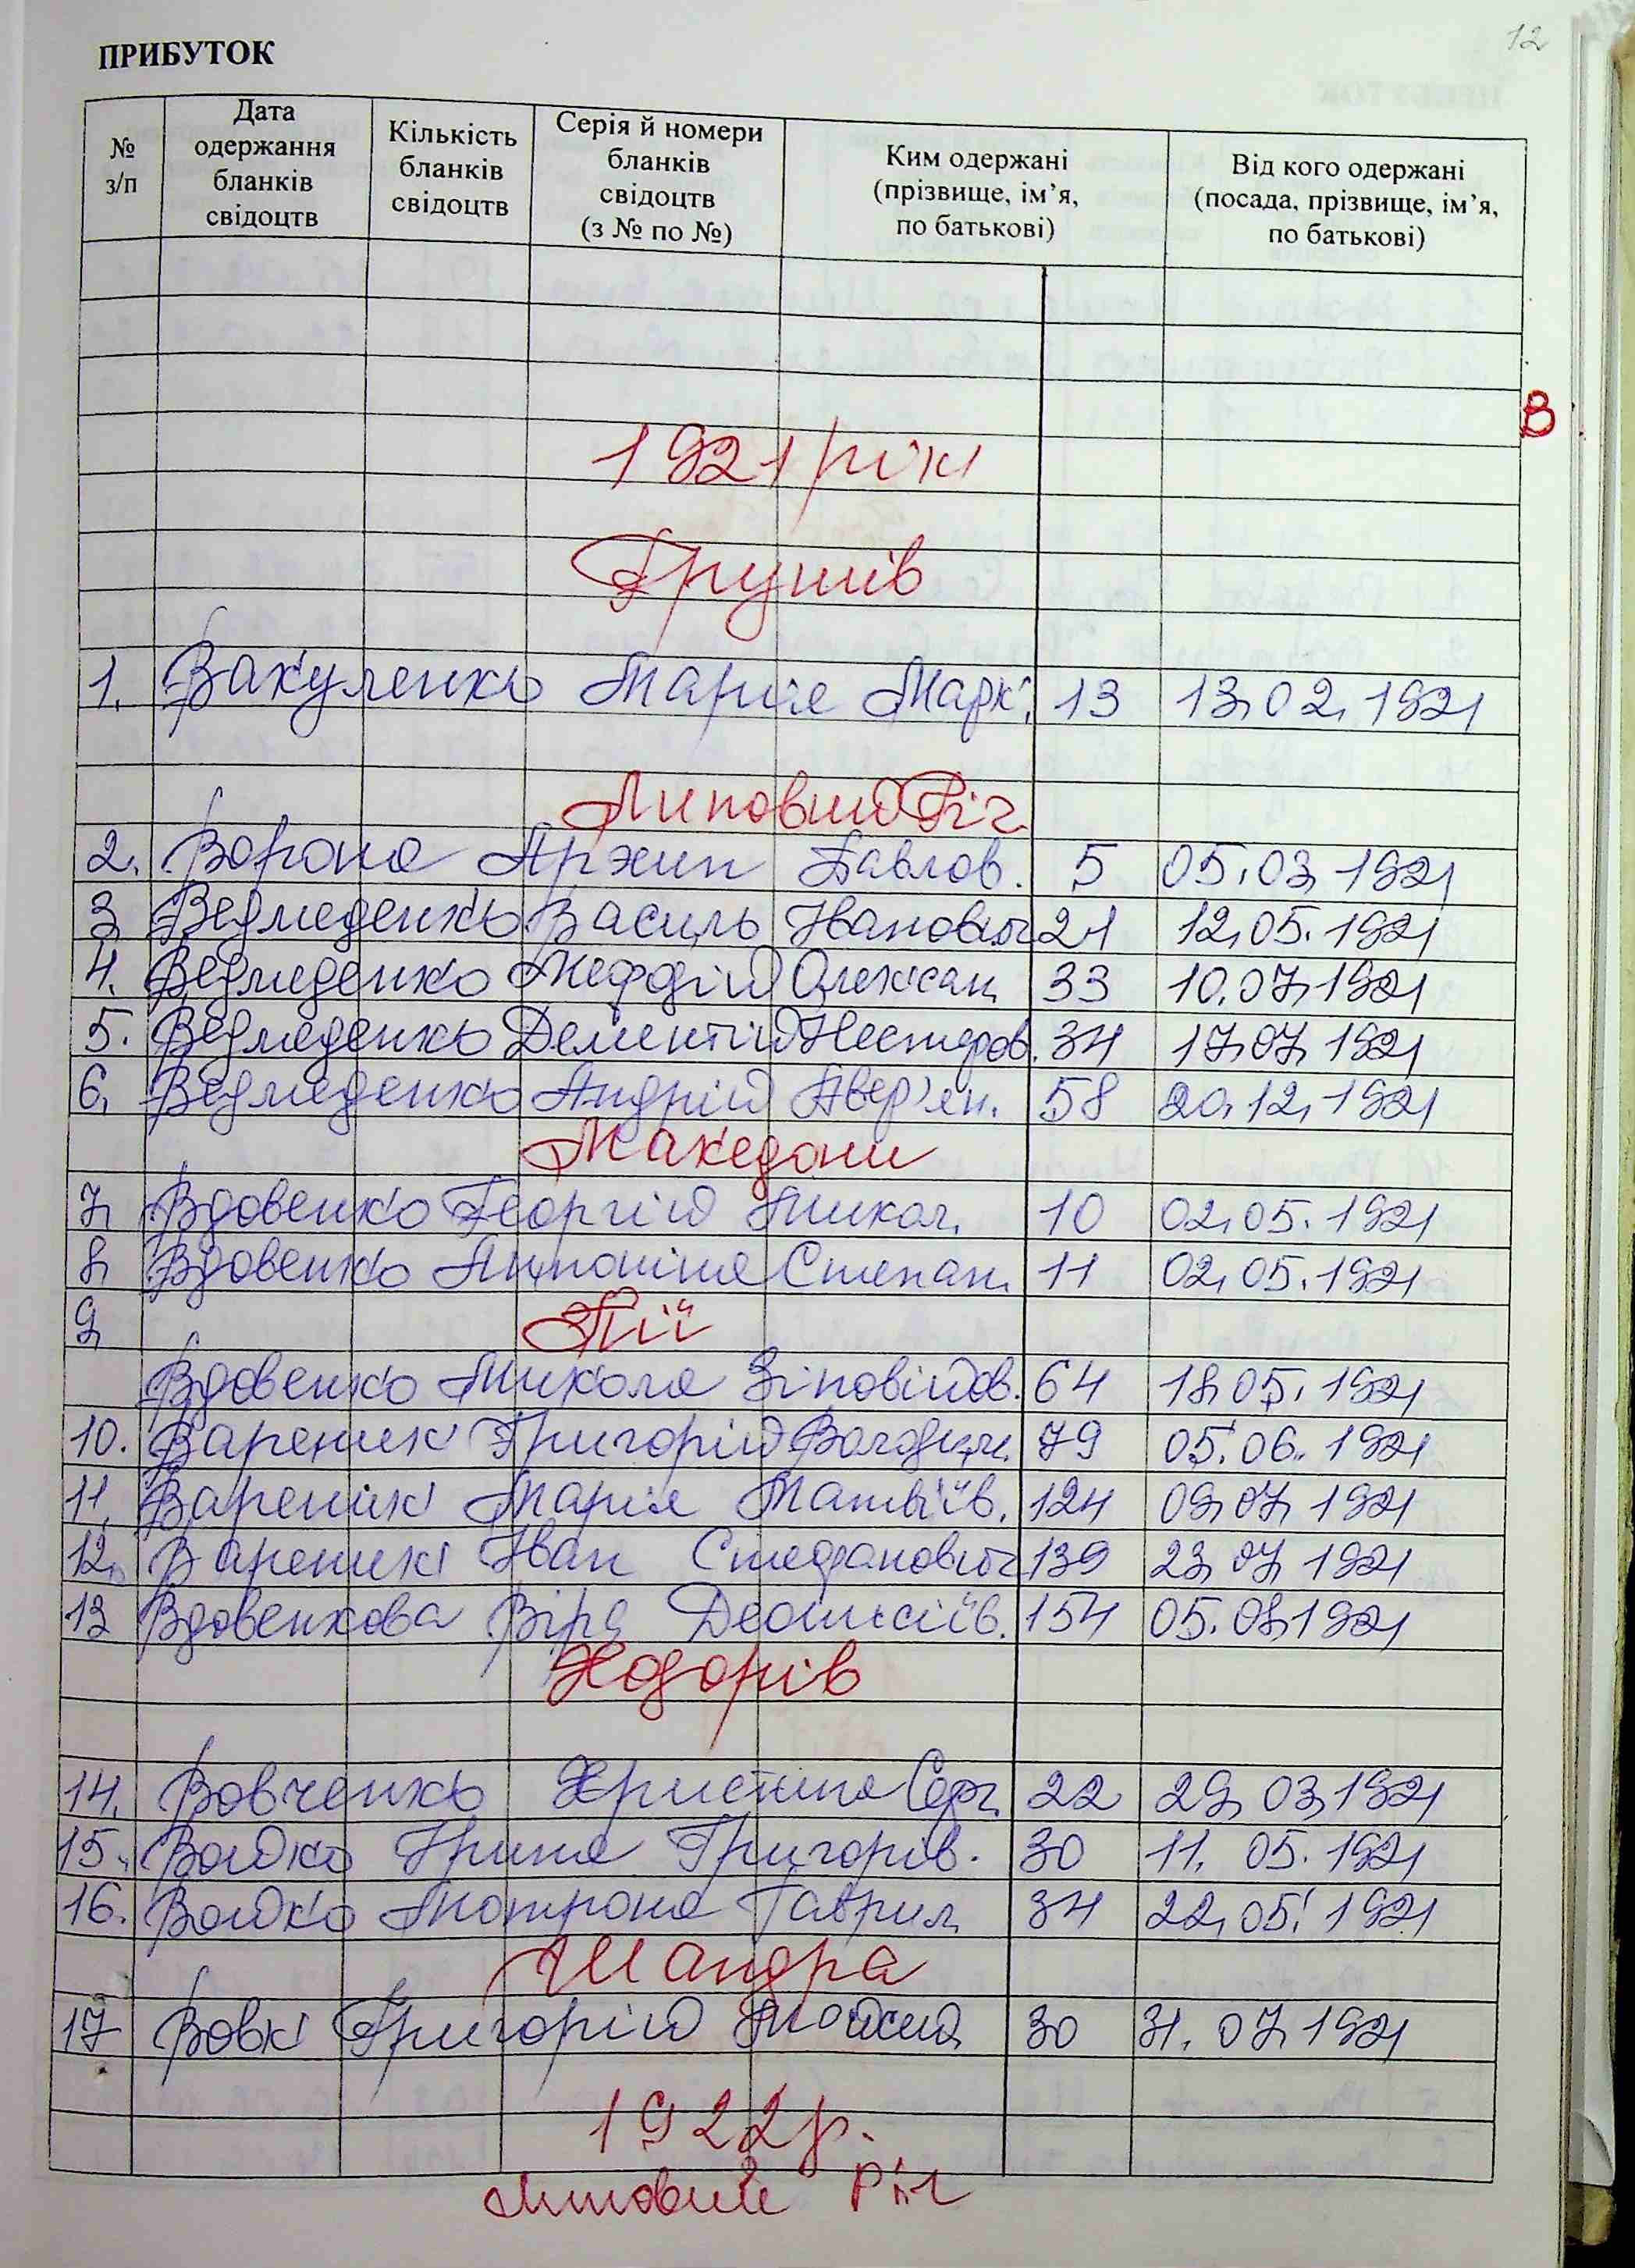 12
ПРИБУТОК
№ з/п
Дата одержання бланків свідоцтв
Кількість бланків свідоцтв
Серія й номери бланків свідоцтв (з № по №)
Ким одержані (прізвище, ім’я, по батькові)
Від кого одержані (посада, прізвище, ім’я, по батькові)
В
1921 рік
Грушів
1. Вакуленко Марія Марк. 13 13.02.1921
Липовий Ріг
2. Ворона Архип Павлов. 5 05.03.1921
3. Ведмеденко Василь Іванович 21 12.05.1921
4. Ведмеденко Мефодій Олексан. 33 10.07.1921
5. Ведмеденко Дементій Нестеров. 34 17.07.1921
6. Ведмеденко Андрій Авер'ян. 58 20.12.1921
Македони
7. Вдовенко Георгій Микол. 10 02.05.1921
8. Вдовенко Антоніна Степан. 11 02.05.1921
9. Пії
Вдовенко Микола Зіновійов. 64 18.05.1921
10. Вареник Григорій Володим. 79 05.06.1921
11. Вареник Марія Матвіїв. 124 09.07.1921
12. Вареник Іван Стефанович 139 23.07.1921
13 Вдовенкова Віра Деонисіїв. 154 05.08.1921
Ходорів
14. Вовченко Христина Серг. 22 29.03.1921
15. Войко Ірина Григорів. 30 11.05.1921
16. Войко Мотрона Гаврил. 34 22.05.1921
Шандра
17 Вовк Григорій Мойсей. 30 31.07.1921
1922 р.
Липовий Ріг